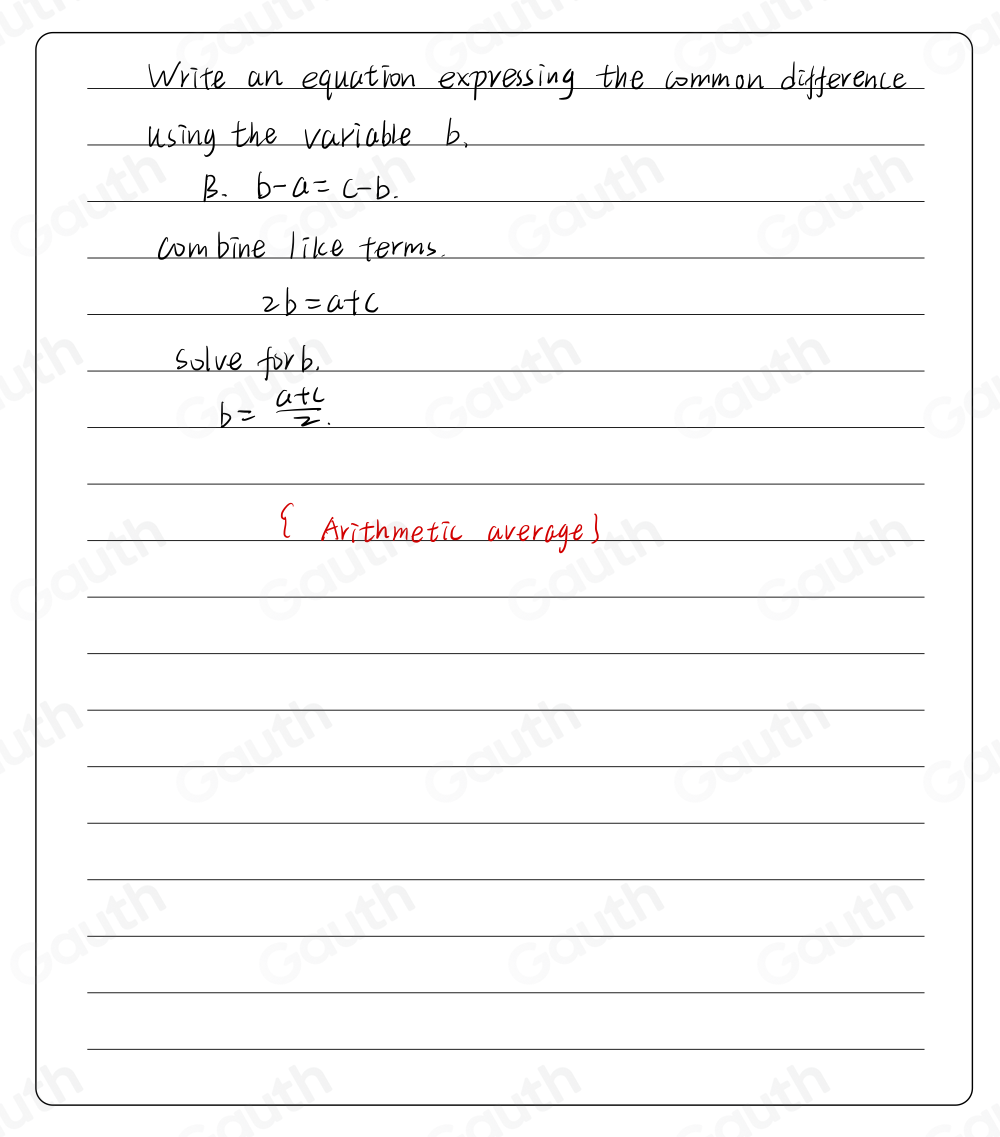 Write an equation expressing the common difference
using the variable b.
B. b-a=c-b.
combine like terms.
2b=a+c
solve for b.
b= \frac{a+c}{2}.
{ Arithmetic average}
Gauth